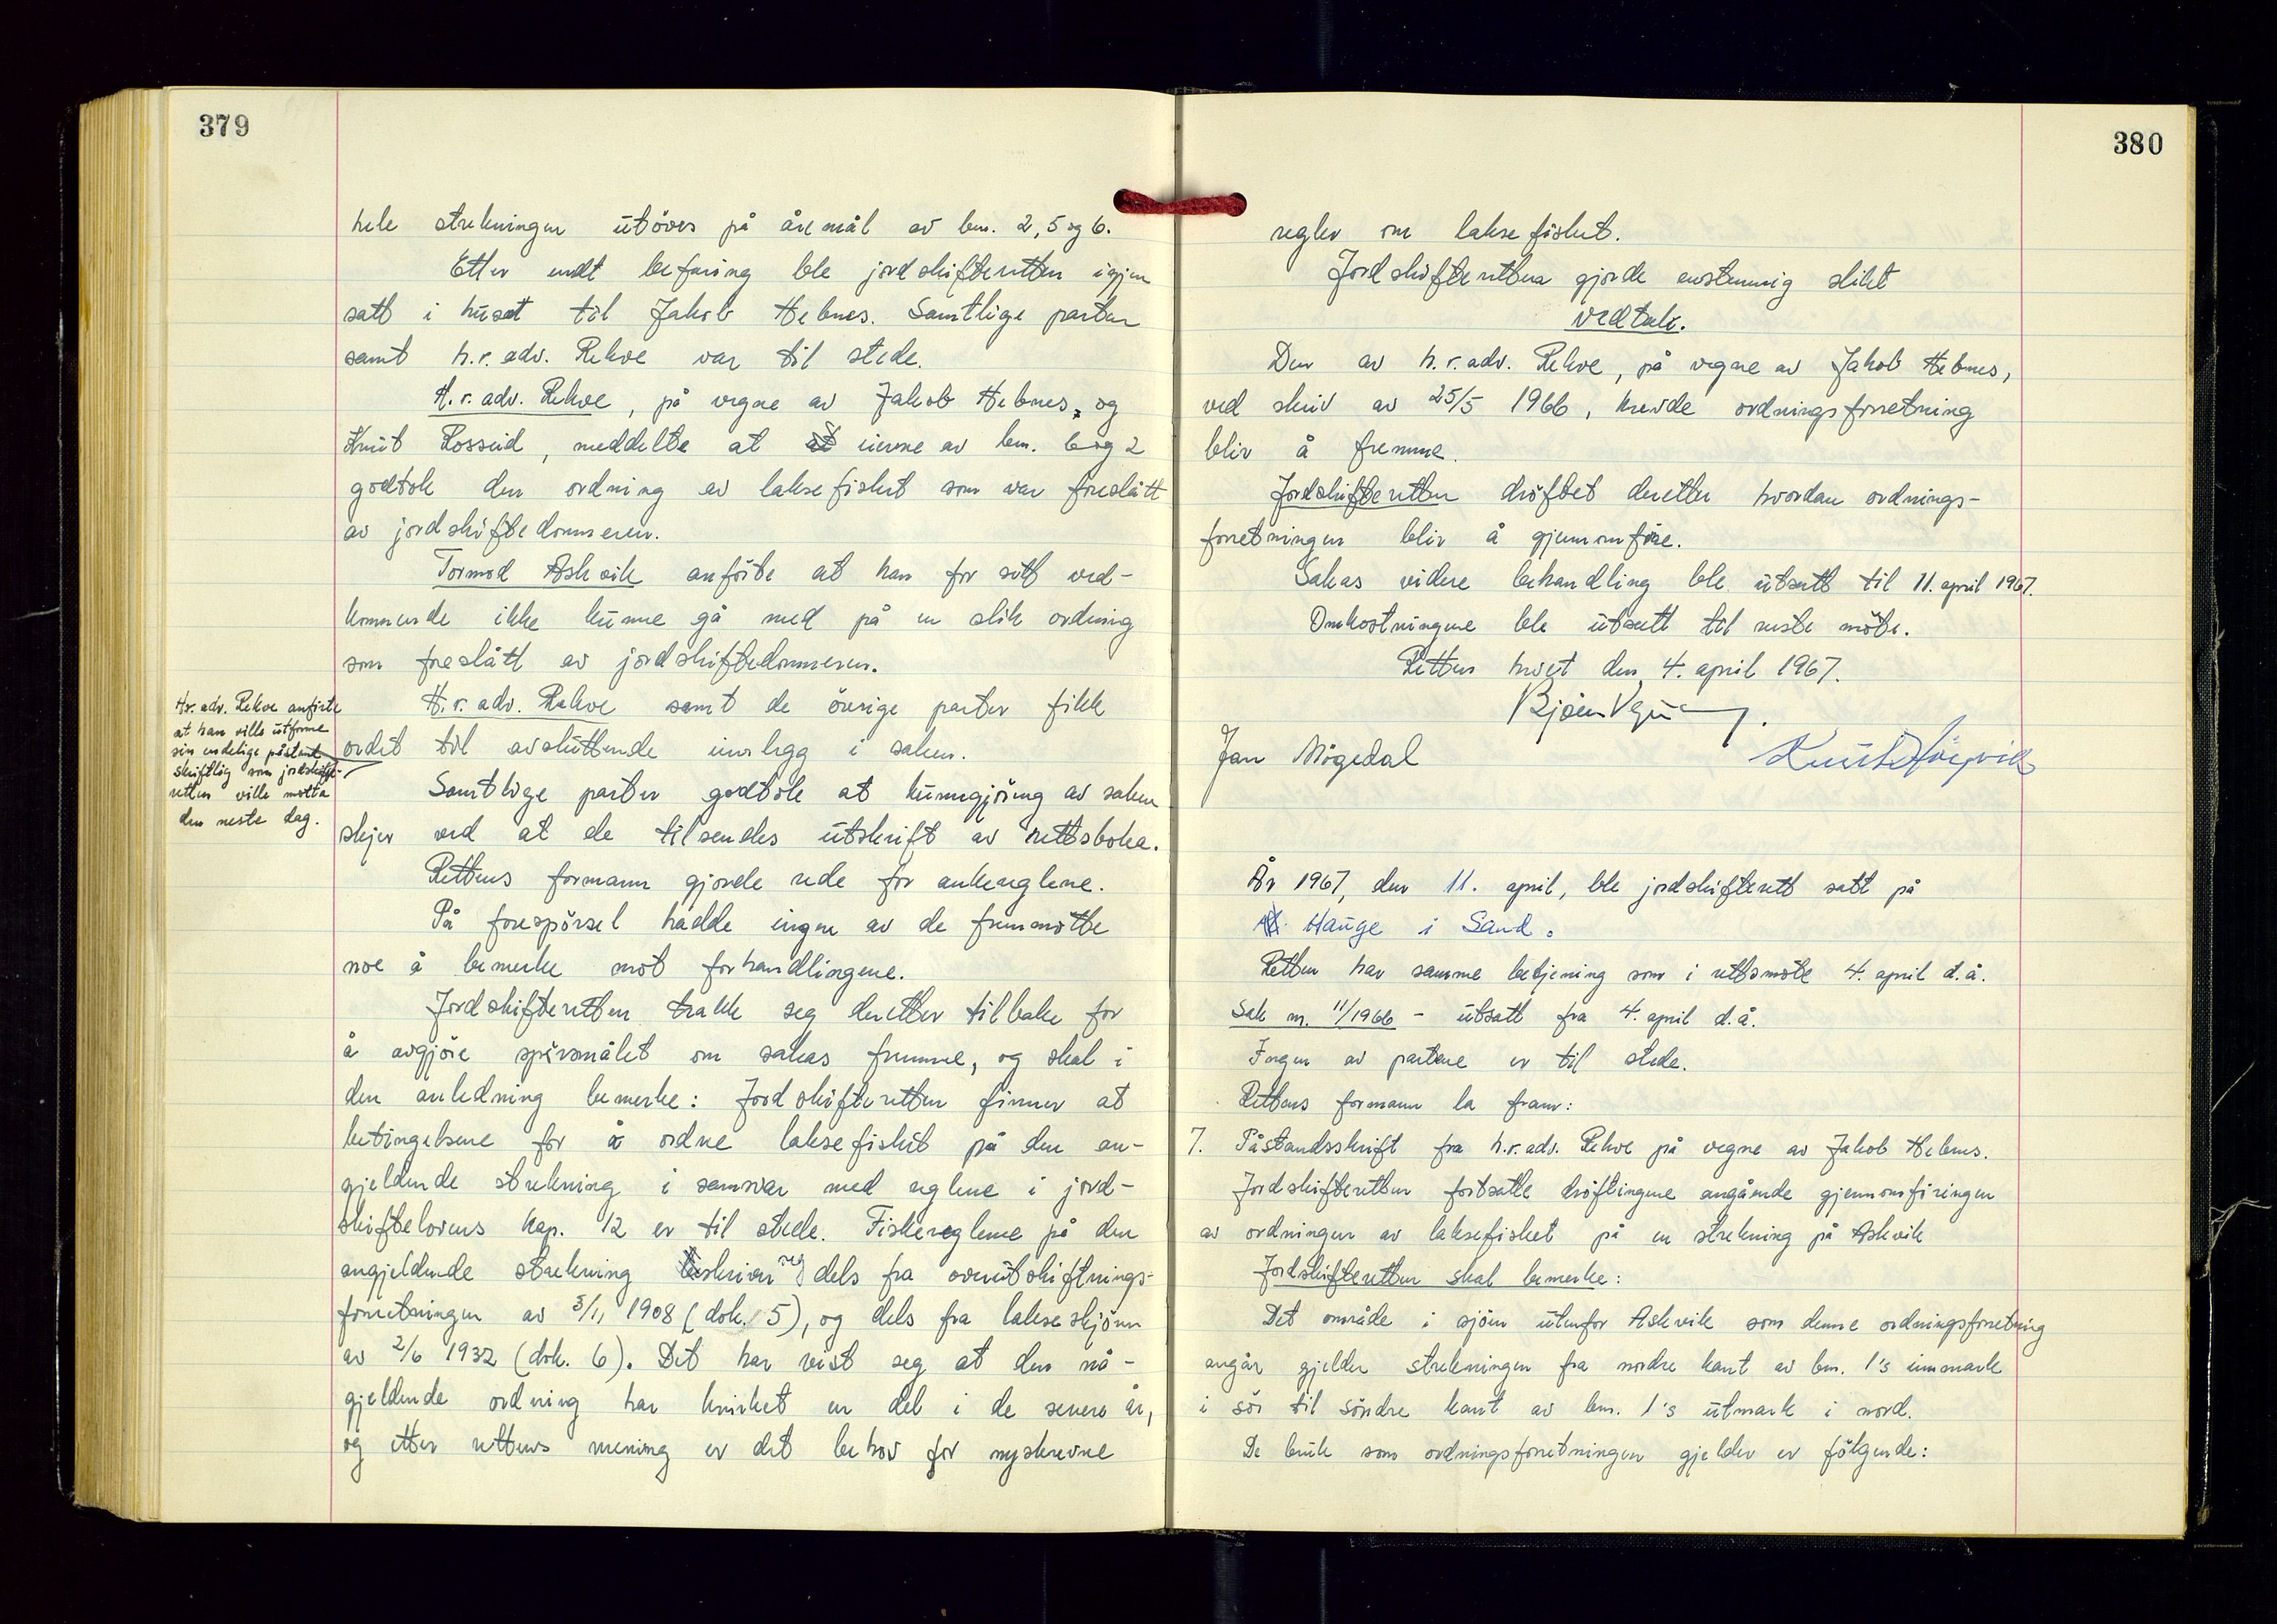 379
hele strekningen utöves på åremål av bnr. 2, 5 og 6.
Etter endt befaring ble jordskifteretten igjen
satt i huset til Jakob Hebnes. Samtlige parter
samt h.r.adv. Rekve var til stede.
H.r.adv. Rekve, på vegne av Jakob Hebnes, og
Knut Rosseid, meddelte at eierne av bnr. 6 og 2
godtok den ordning av laksefisket som var foreslått
av jordskiftedommeren.
Tormod Askvik anförte at han for sitt ved-
kommende ikke kunne gå med på en slik ordning
som foreslått av jordskiftedommeren.
H.r.adv. Rekve samt de övrige parter fikk
ordet til avsluttende innlegg i saken.
Hr.adv. Rekve anförte
at han ville utforme
sin endelige påstand
skriftlig som jordskifte-
retten ville motta
den neste dag.
Samtlige parter godtok at kunngjöring av saken
skjer ved at de tilsendes utskrift av rettsboka.
Rettens formann gjorde rede for ankereglene.
På forespörsel hadde ingen av de fremmötte
noe å bemerke mot forhandlingene.
Jordskifteretten trakk seg deretter tilbake for
å avgjöre spörsmålet om sakas fremme, og skal i
den anledning bemerke: Jordskifteretten finner at
betingelsene for å ordne laksefisket på den an-
gjeldende strekning i samsvar med reglene i jord-
skiftelovens kap. 12 er til stede. Fiskereglene på den
angjeldende strekning skriver seg dels fra overutskiftnings-
forretningen av 3/11 1908 (dok. 5), og dels fra lakseskjönn
av 2/6 1932 (dok. 6). Det har vist seg at den nå-
gjeldende ordning har knirket en del i de senere år,
og etter rettens mening er det behov for nyskrevne
380
regler om laksefisket.
Jordskifteretten gjorde enstemmig slikt
vedtak.
Den av h.r.adv. Rekve, på vegne av Jakob Hebnes,
ved skriv av 25/5 1966, krevde ordningsforretning
blir å fremme.
Jordskifteretten dröftet deretter hvordan ordnings-
forretningen blir å gjennomföre.
Sakas videre behandling ble utsatt til 11. april 1967.
Omkostningene ble utsatt til neste möte.
Retten hevet den 4. april 1967.
Jan Mögedal
År 1967, den 11. april, ble jordskifterett satt på
Hauge i Sand.
Retten har samme betjening som i rettsmöte 4. april d.å.
Sak nr. 11/1966 - utsatt fra 4. april d.å.
Ingen av partene er til stede.
Rettens formann la fram:
7. Påstandsskrift fra h.r.adv. Rekve på vegne av Jakob Hebnes.
Jordskifteretten fortsatte dröftingene angående gjennomföringen
av ordningen av laksefisket på en strekning på Askvik
Jordskifteretten skal bemerke:
Det område i sjöen utenfor Askvik som denne ordningsforretning
angår gjelder strekningen fra nordre kant av bnr. 1's innmark
i sör til söndre kant av bnr. 1's utmark i nord.
De bruk som ordningsforretningen gjelder er fölgende: